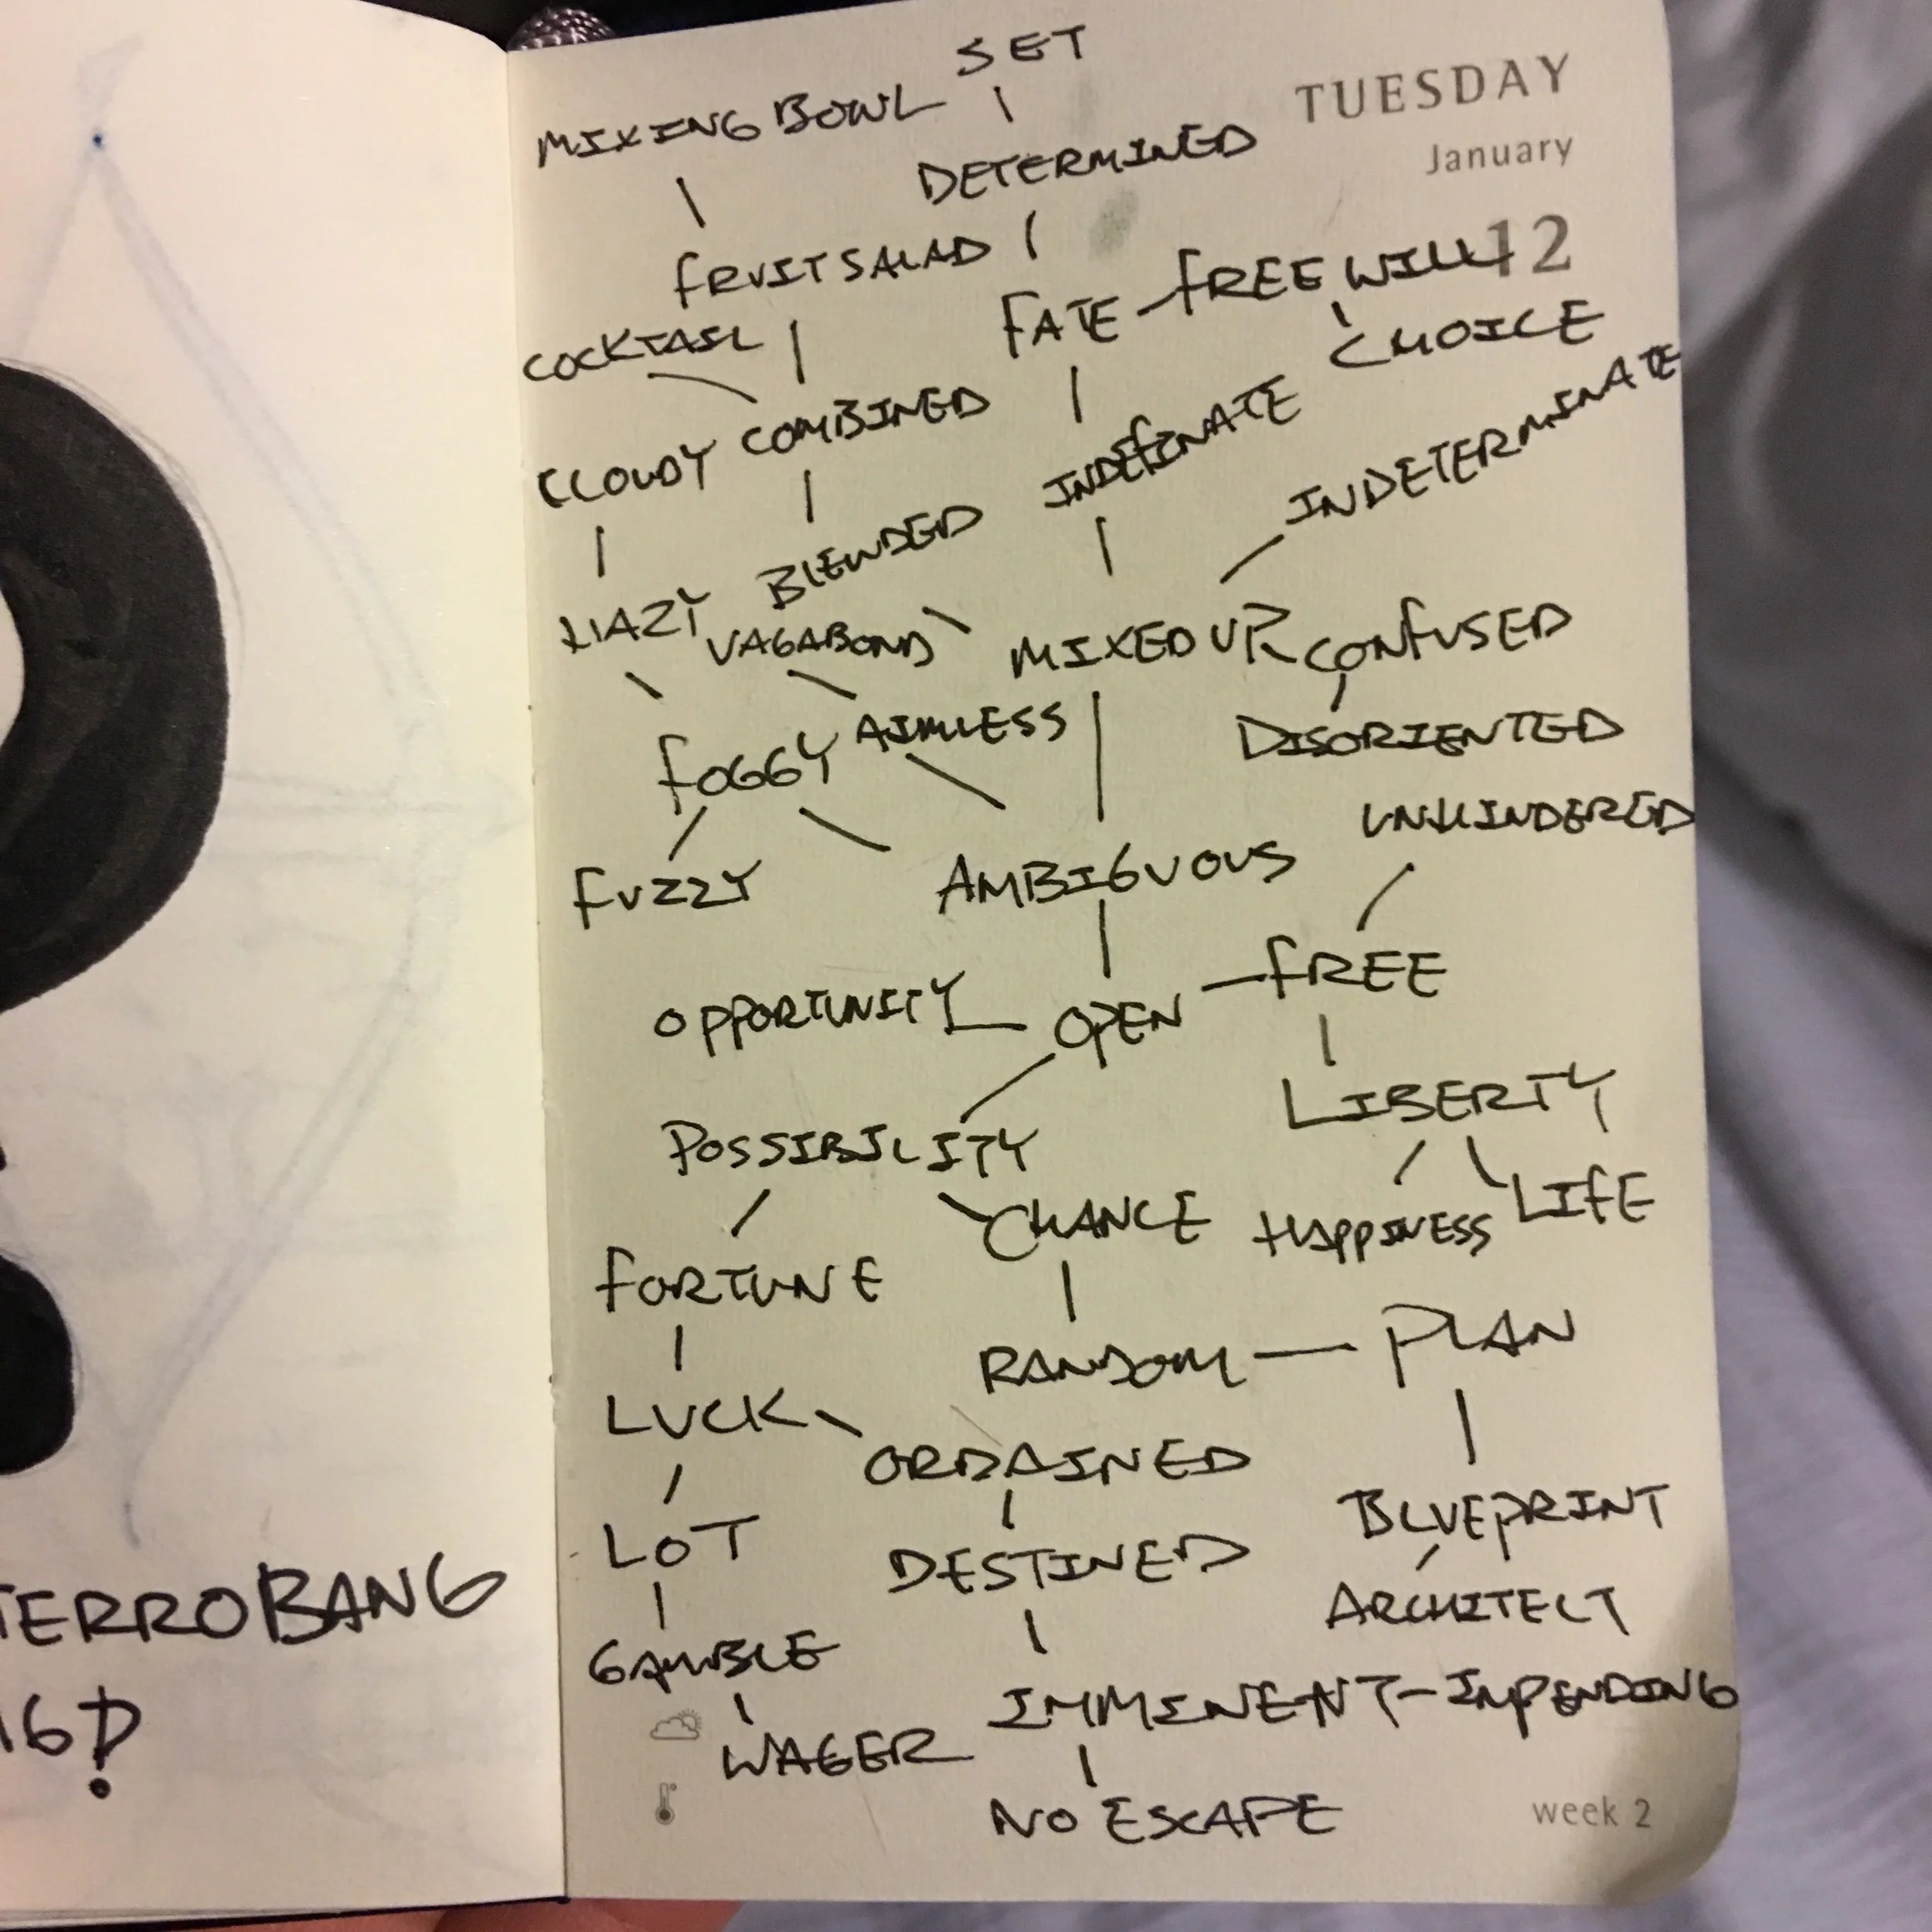 SET
MIXING BOWL
TUESDAY
January
12
DETERMINED
FRUIT SALAD
FATE - FREE WILL
COCKTAIL
CHOICE
COMBINED
INDEFINATE
INDETERMINATE
CLOUDY
BLENDED
HAZY
VAGABOND
MIXED UP
CONFUSED
AIMLESS
DISORIENTED
FOGGY
UNHINDERED
FUZZY
AMBIGUOUS
OPPORTUNITY - OPEN - FREE
LIBERTY
POSSIBILITY
CHANCE
HAPPINESS
LIFE
FORTUNE
RANDOM - PLAN
LUCK
ORDAINED
BLUEPRINT
LOT
DESTINED
ARCHITECT
GAMBLE
IMMENENT - IMPENDING
WAGER
NO ESCAPE
week 2
TERROBANG
16?!